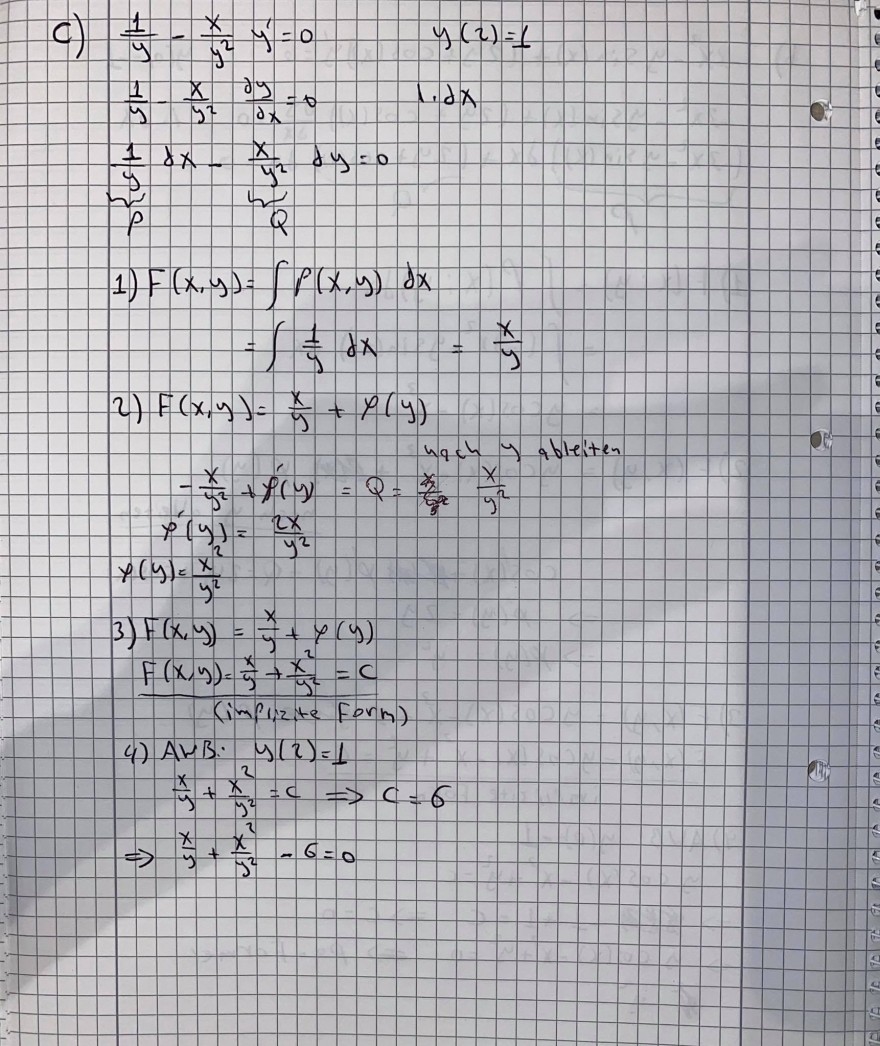 c) 1/y - x/y² y' = 0 y(2)=1
1/y - x/y² dy/dx = 0 |·dx
1/y dx - x/y² dy = 0
P Q
1) F(x,y) = ∫ P(x,y) dx
= ∫ 1/y dx = x/y
2) F(x,y) = x/y + φ(y)
nach y ableiten
-x/y² + φ'(y) = Q = x/y²
φ'(y) = 2x/y²
φ(y) = x²/y²
3) F(x,y) = x/y + φ(y)
F(x,y) = x/y + x²/y² = C
(implizite Form)
4) AWB: y(2)=1
x/y + x²/y² = C ⇒ C = 6
⇒ x/y + x²/y² - 6 = 0